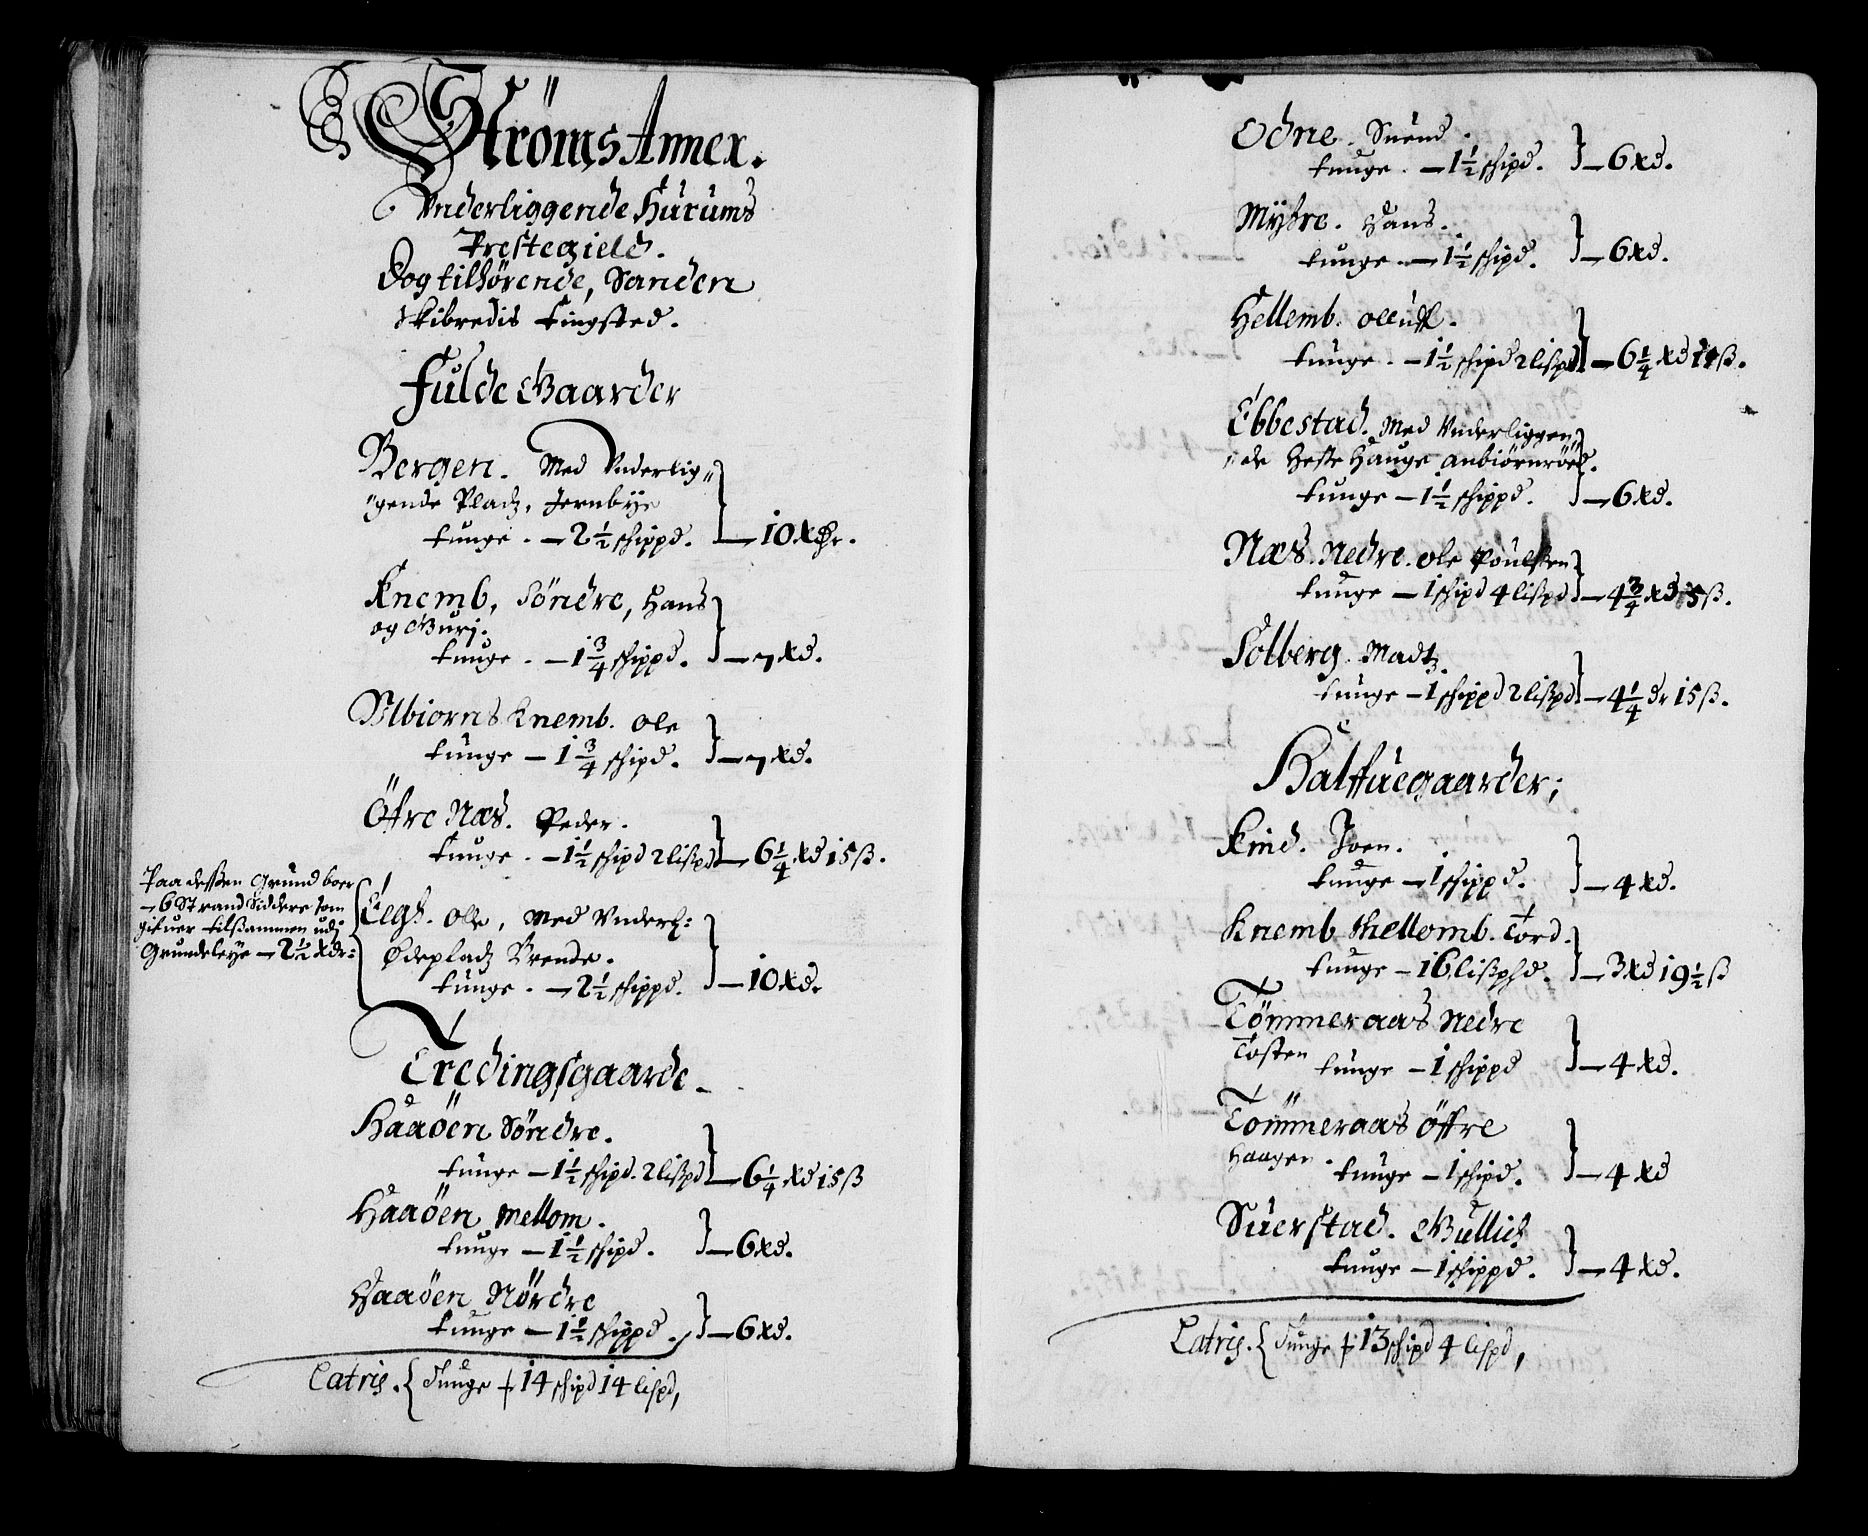 Ströms Annex.
Vnderliggende Hurums
Prestegield.
Dog tilhörende, Sanden
skibredis tingsted.
Fulde Gaarder
Bergen. Med Vnderlig„
„gende Pladz, Jernbÿe
tunge. — 2½ schippd. — 10 Rdr.
Knemb, Söndre, Hans
og Gurj.
tunge. — 1¾ schippd. — 7 Rd.
Albiorns Knemb. ole
tunge — 1¾ schipd. — 7 Rd.
Öfre Næs. Peder.
tunge. — 1½ schipd 2 lißpd — 6¼ Rd 15 ß.
Paa dessen Grund boer
— 6 Strand Siddere som
gifuer tilsammen udj
Grundeleÿe — 2½ Rdr:
Elgs. Olle, Med Vnderl:
Ødepladz Brende.
tunge. — 2½ schippd. — 10 Rd.
Tredingsgaarde.
Haaöen Söndre.
tunge — 1½ schipd. 2 lißpd — 6¼ Rd 15 ß
Haaöen Mellom.
tunge — 1½ schipd. — 6 Rd.
Haaöen Nördre
tunge — 1½ schippd. — 6 Rd.
Latris. { Tunge + 14 schipd 14 lispd,
Odne. Suend
tunge. — 1½ schipd. — 6 Rd.
Mÿhre. Hans.
tunge. — 1½ schipd. — 6 Rd.
Hellemb. olluff.
tunge. — 1½ schipd 2 lißpd — 6¼ Rd 15 ß.
Ebbestad. Med Vnderliggen„
„de Heste Hauge Anbiörnröed.
tunge — 1½ schippd. — 6 Rd.
Næs. Nedre. ole Poulssen
tunge — 1 schipd 4 lißpd — 4¾ Rd 5 ß.
Solberg. Madtz.
tunge — 1 schippd 2 lißpd — 4¼ dr 15 ß.
Halffuegaarder;
Kind. Joen.
tunge — 1 schippd. — 4 Rd.
Knemb Mellomb. Tord.
tunge — 16 lißphd. — 3 Rd 19½ ß
Tömmeraas Nedre
Tosten tunge — 1 schippd — 4 Rd.
Tömmeraas Öffre
Haagen. tunge — 1 schipd. — 4 Rd
Suerstad. Gullich
tunge — 1 schippd. — 4 Rd.
Latris. { Tunge + 13 schipd 4 lispd,